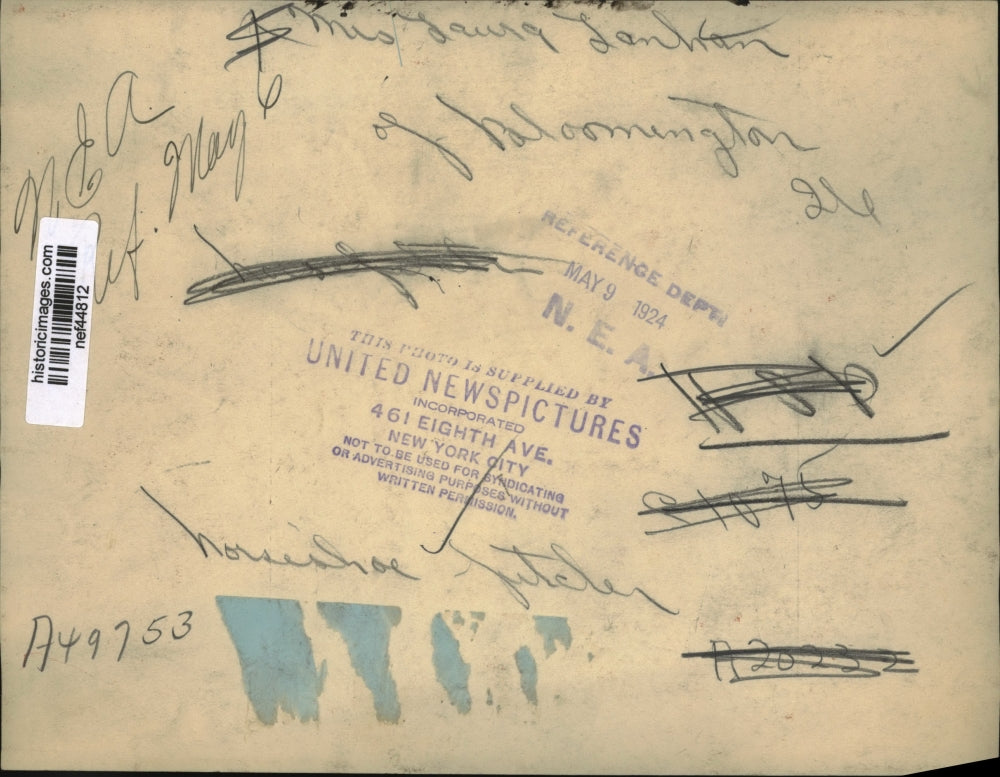 Mrs Laura Lanham
of Bloomington
Ill
N.E.A.
Ref. May 6
historicimages.com
nef44812
REFERENCE DEPT.
MAY 9 1924
N. E. A.
THIS PHOTO IS SUPPLIED BY
UNITED NEWSPICTURES
INCORPORATED
461 EIGHTH AVE.
NEW YORK CITY
NOT TO BE USED FOR SYNDICATING
OR ADVERTISING PURPOSES WITHOUT
WRITTEN PERMISSION.
horseshoe pitcher
A49753
A20232